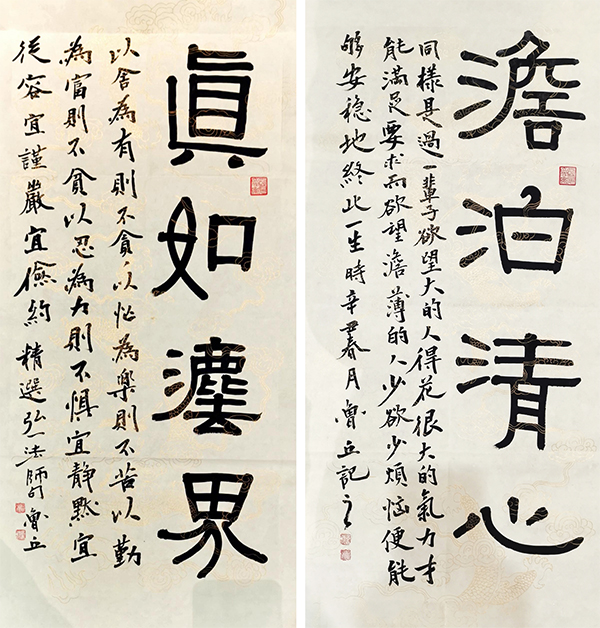 澹泊清心
同樣是過一輩子欲望大的人得花很大的氣力才
能滿足要求而欲望澹薄的人少欲少煩惱便能
够安稳地終此一生時辛丑春月魯丘記之
眞如灋界
以舍為有則不貪以忙為樂則不苦以勤
為富則不貧以忍為力則不懼宜靜默宜
從容宜謹嚴宜儉約精選弘一法師句魯丘